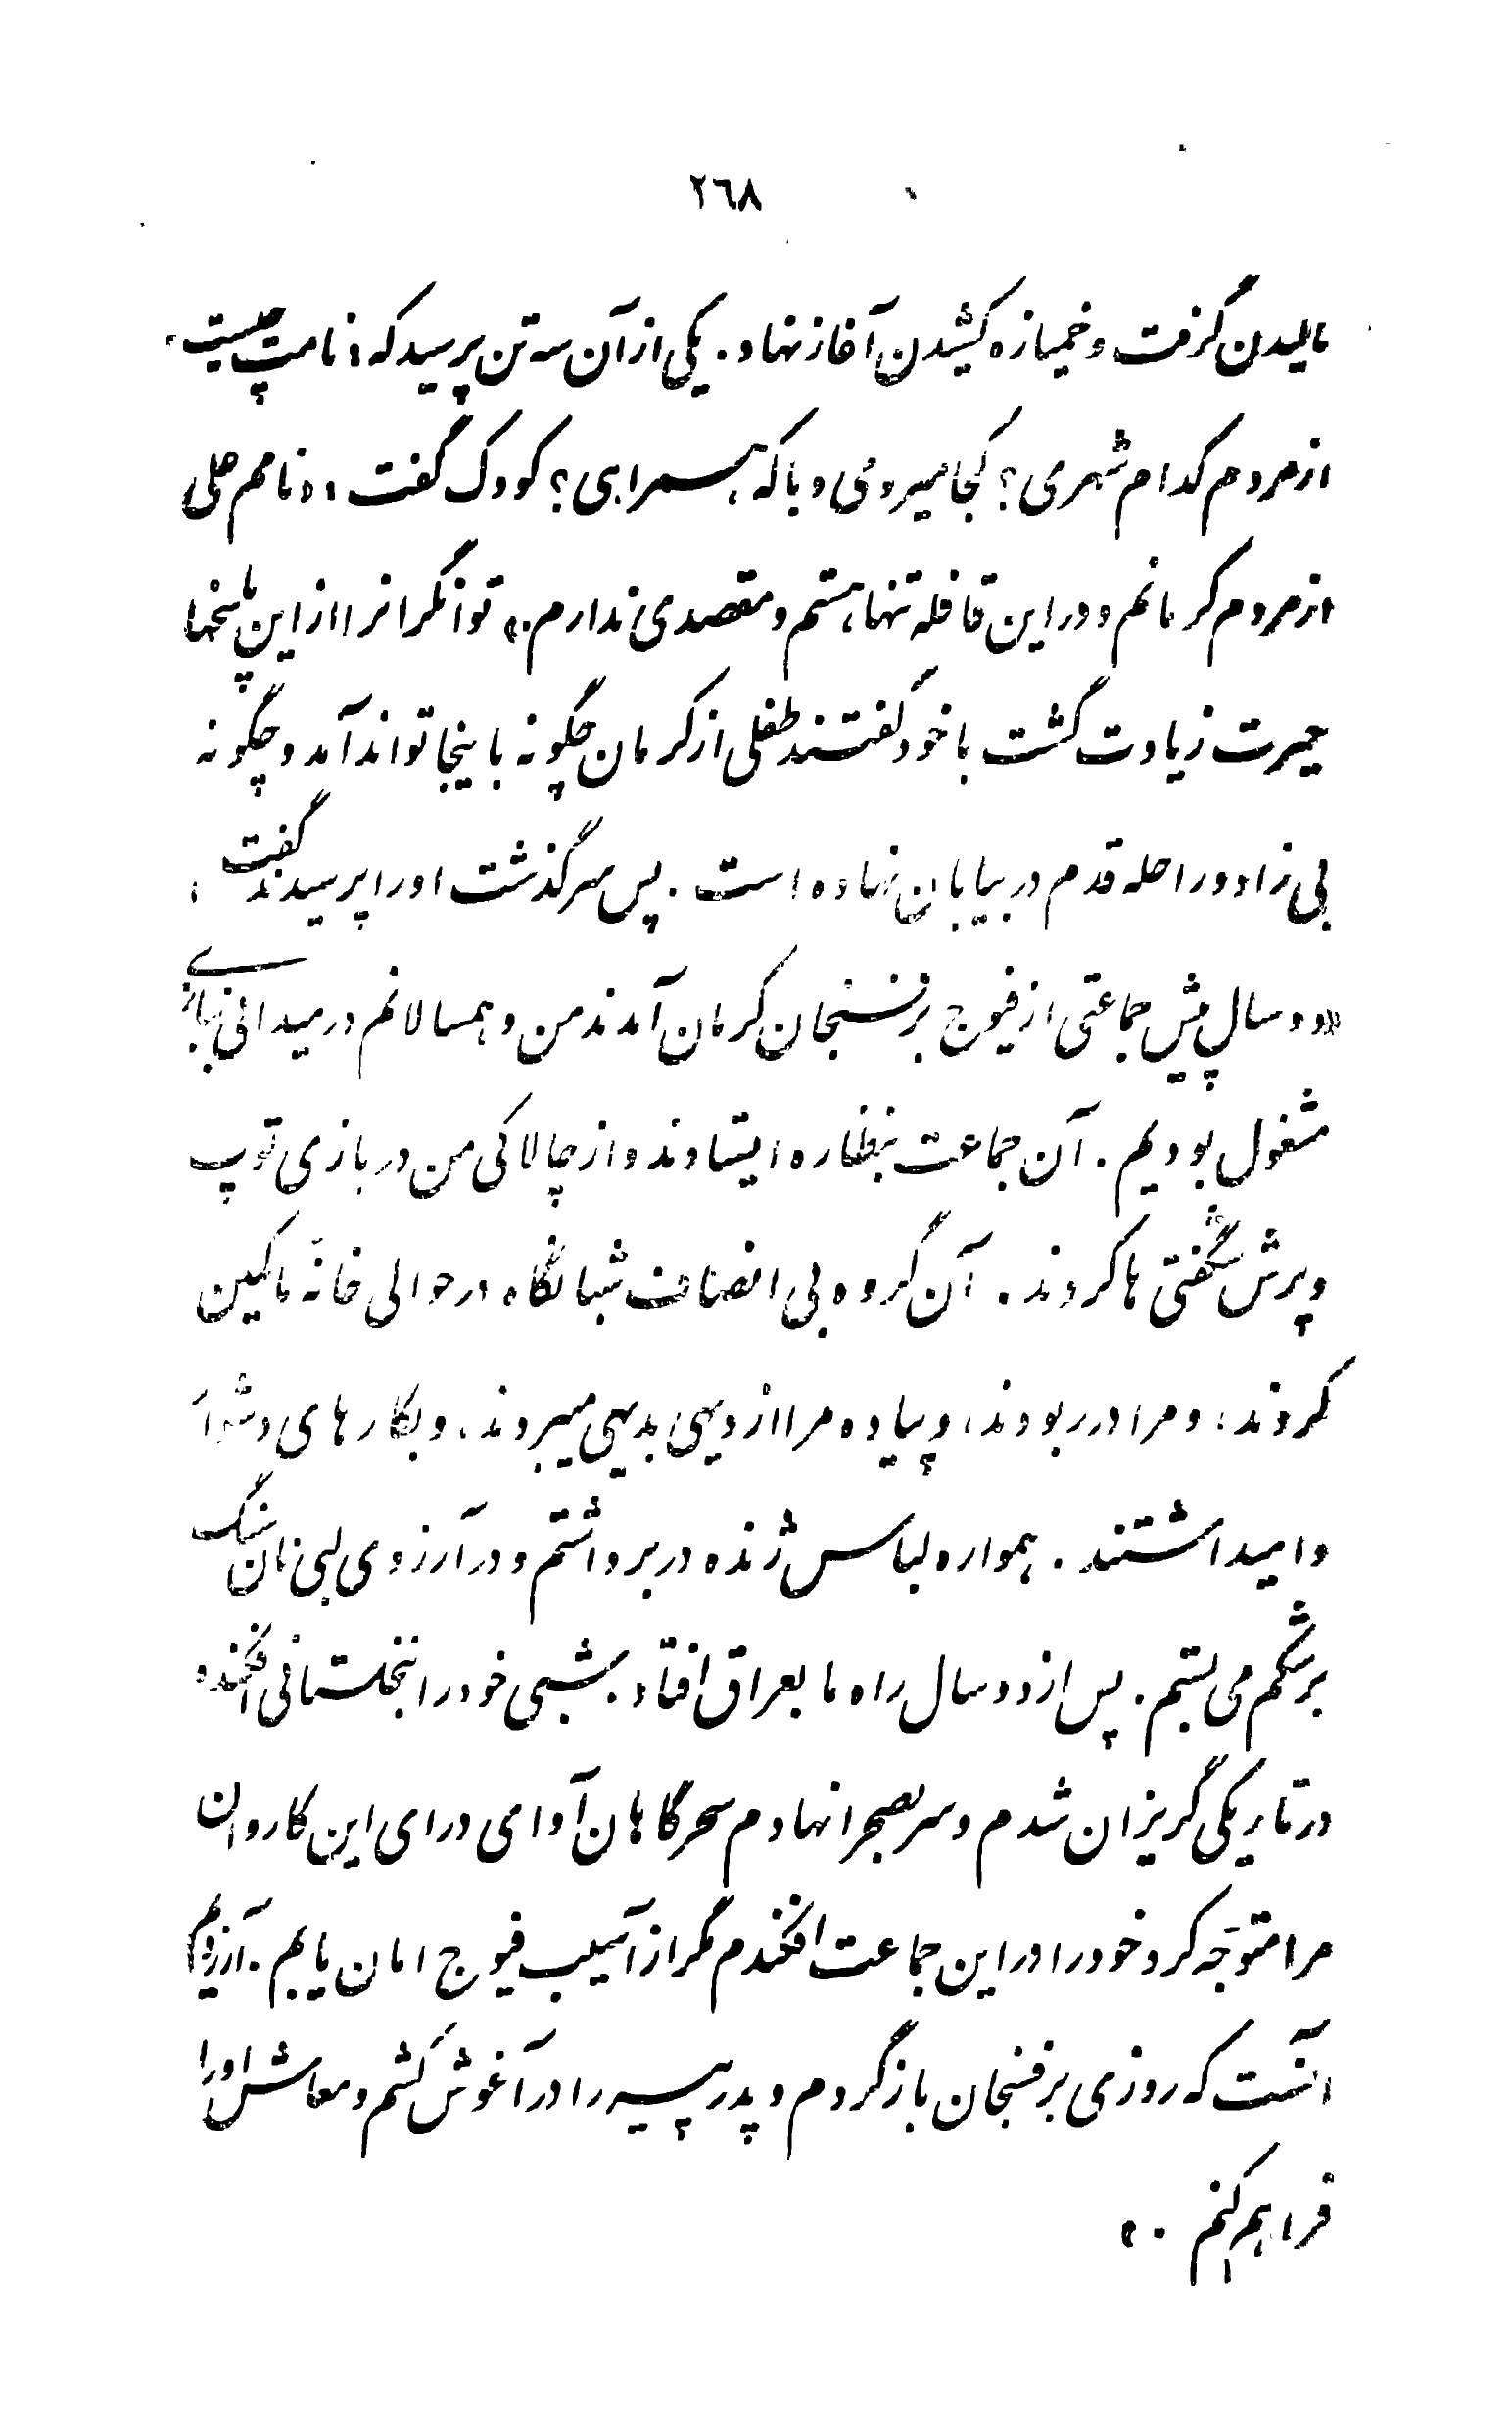 ٢٦٨
مالیدن گرفت و خمیازه کشیدن آغاز نهاد. یکی از آن سه تن پرسید که: نامت چیست،
از مردم کدام شهری؟ کجا میروی و با که همراهی؟ کودک گفت: «نامم علی
از مردم کرمانم و در این قافله تنها هستم و مقصدی ندارم.» توانگرانرا از این پاسخها
حیرت زیادت گشت با خود گفتند طفلی از کرمان چگونه باینجا تواند آمد و چگونه
بی زاد و راحله قدم در بیابان نهاده است. پس سرگذشت او را پرسیدند گفت:
«دو سال پیش جماعتی از فیوج برفسنجان کرمان آمدند من و همسالانم در میدانی ببازی
مشغول بودیم. آن جماعت بنظاره ایستادند و از چالاکی من در بازی توپ
و پرش شگفتی ها کردند. آن گروه بی انصاف شبانگاه در حوالی خانهٔ ما کمین
کردند، و مرا در ربودند، و پیاده مرا از دیهی بدیهی میبردند، و بکارهای دشوار
وامیداشتند. همواره لباس ژنده در بر داشتم و در آرزوی لبی نان سنگ
بر شکم می بستم. پس از دو سال راه ما بعراق افتاد. شبی خود را بنخلستانی افکنده
در تاریکی گریزان شدم و سر بصحرا نهادم سحرگاهان آوای درای این کاروان
مرا متوجّه کرد خود را در این جماعت افکندم مگر از آسیب فیوج امان یابم. آرزویم
آنست که روزی برفسنجان بازگردم و پدر پیر را در آغوش کشم و معاش او را
فراهم کنم.»